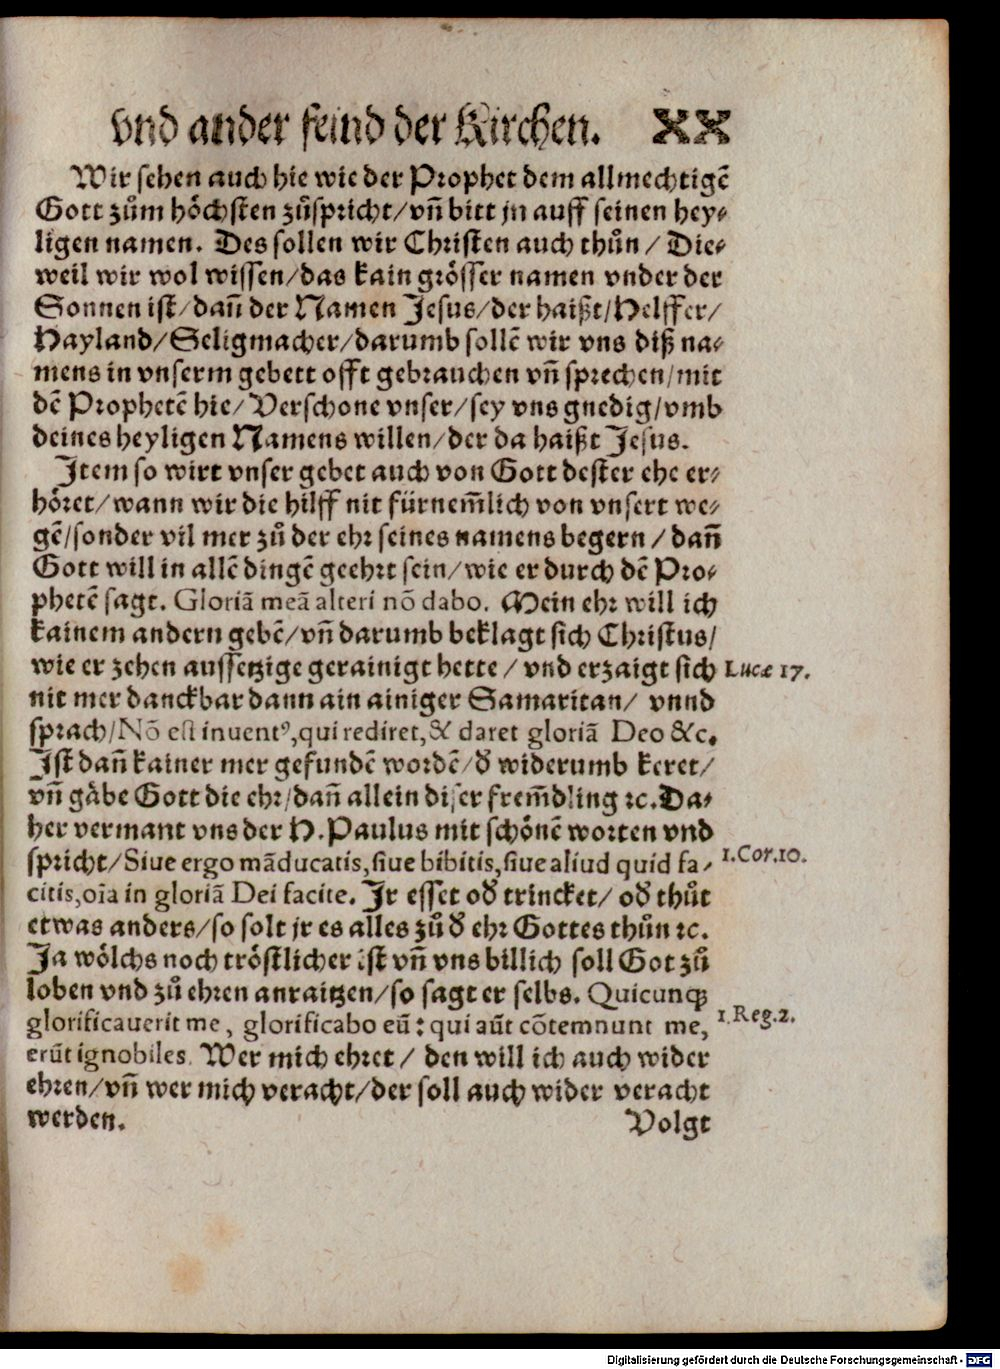 vnd ander feind der Kirchen. XX
Wir sehen auch hie wie der Prophet dem allmechtigẽ
Gott zům höchsten zůspricht/vñ bitt jn auff seinen hey⸗
ligen namen. Des sollen wir Christen auch thůn / Die⸗
weil wir wol wissen/das kain grösser namen vnder der
Sonnen ist/dañ der Namen Jesus/der haißt/Helffer/
Hayland/Seligmacher/darumb sollẽ wir vns diß na⸗
mens in vnserm gebett offt gebrauchen vñ sprechen/mit
dẽ Prophetẽ hie/Verschone vnser/sey vns gnedig/vmb
deines heyligen Namens willen/der da haißt Jesus.
Item so wirt vnser gebet auch von Gott dester ehe er⸗
höret/wann wir die hilff nit fürnem̃lich von vnsert we⸗
gẽ/sonder vil mer zů der ehr seines namens begern / dañ
Gott will in allẽ dingẽ geehrt sein/wie er durch dẽ Pro⸗
phetẽ sagt. Gloriã meã alteri nõ dabo. Mein ehr will ich
kainem andern gebẽ/vñ darumb beklagt sich Christus/
wie er zehen aussetzige gerainigt hette / vnd erzaigt sich
Lucæ 17.
nit mer danckbar dann ain ainiger Samaritan/ vnnd
sprach/Nõ est inuentꝰ,qui rediret,& daret gloriã Deo &c.
Ist dañ kainer mer gefundẽ wordẽ/ð widerumb keret/
vñ gäbe Gott die ehr/dañ allein diser frem̃dling ꝛc.Da⸗
her vermant vns der H.Paulus mit schönẽ worten vnd
spricht/Siue ergo mãducatis,siue bibitis,siue aliud quid fa⸗
1.Cor.10.
citis,oĩa in gloriã Dei facite. Ir esset oð trincket/ oð thůt
etwas anders/so solt jr es alles zů ð ehr Gottes thůn ꝛc.
Ja wölchs noch tröstlicher ist vñ vns billich soll Got zů
loben vnd zů ehren anraitzen/so sagt er selbs. Quicunqꝫ
glorificauerit me, glorificabo eũ: qui aũt cõtemnunt me,
1.Reg.2.
erũt ignobiles. Wer mich ehret / den will ich auch wider
ehren/vñ wer mich veracht/der soll auch wider veracht
werden.
Volgt
Digitalisierung gefördert durch die Deutsche Forschungsgemeinschaft - DFG